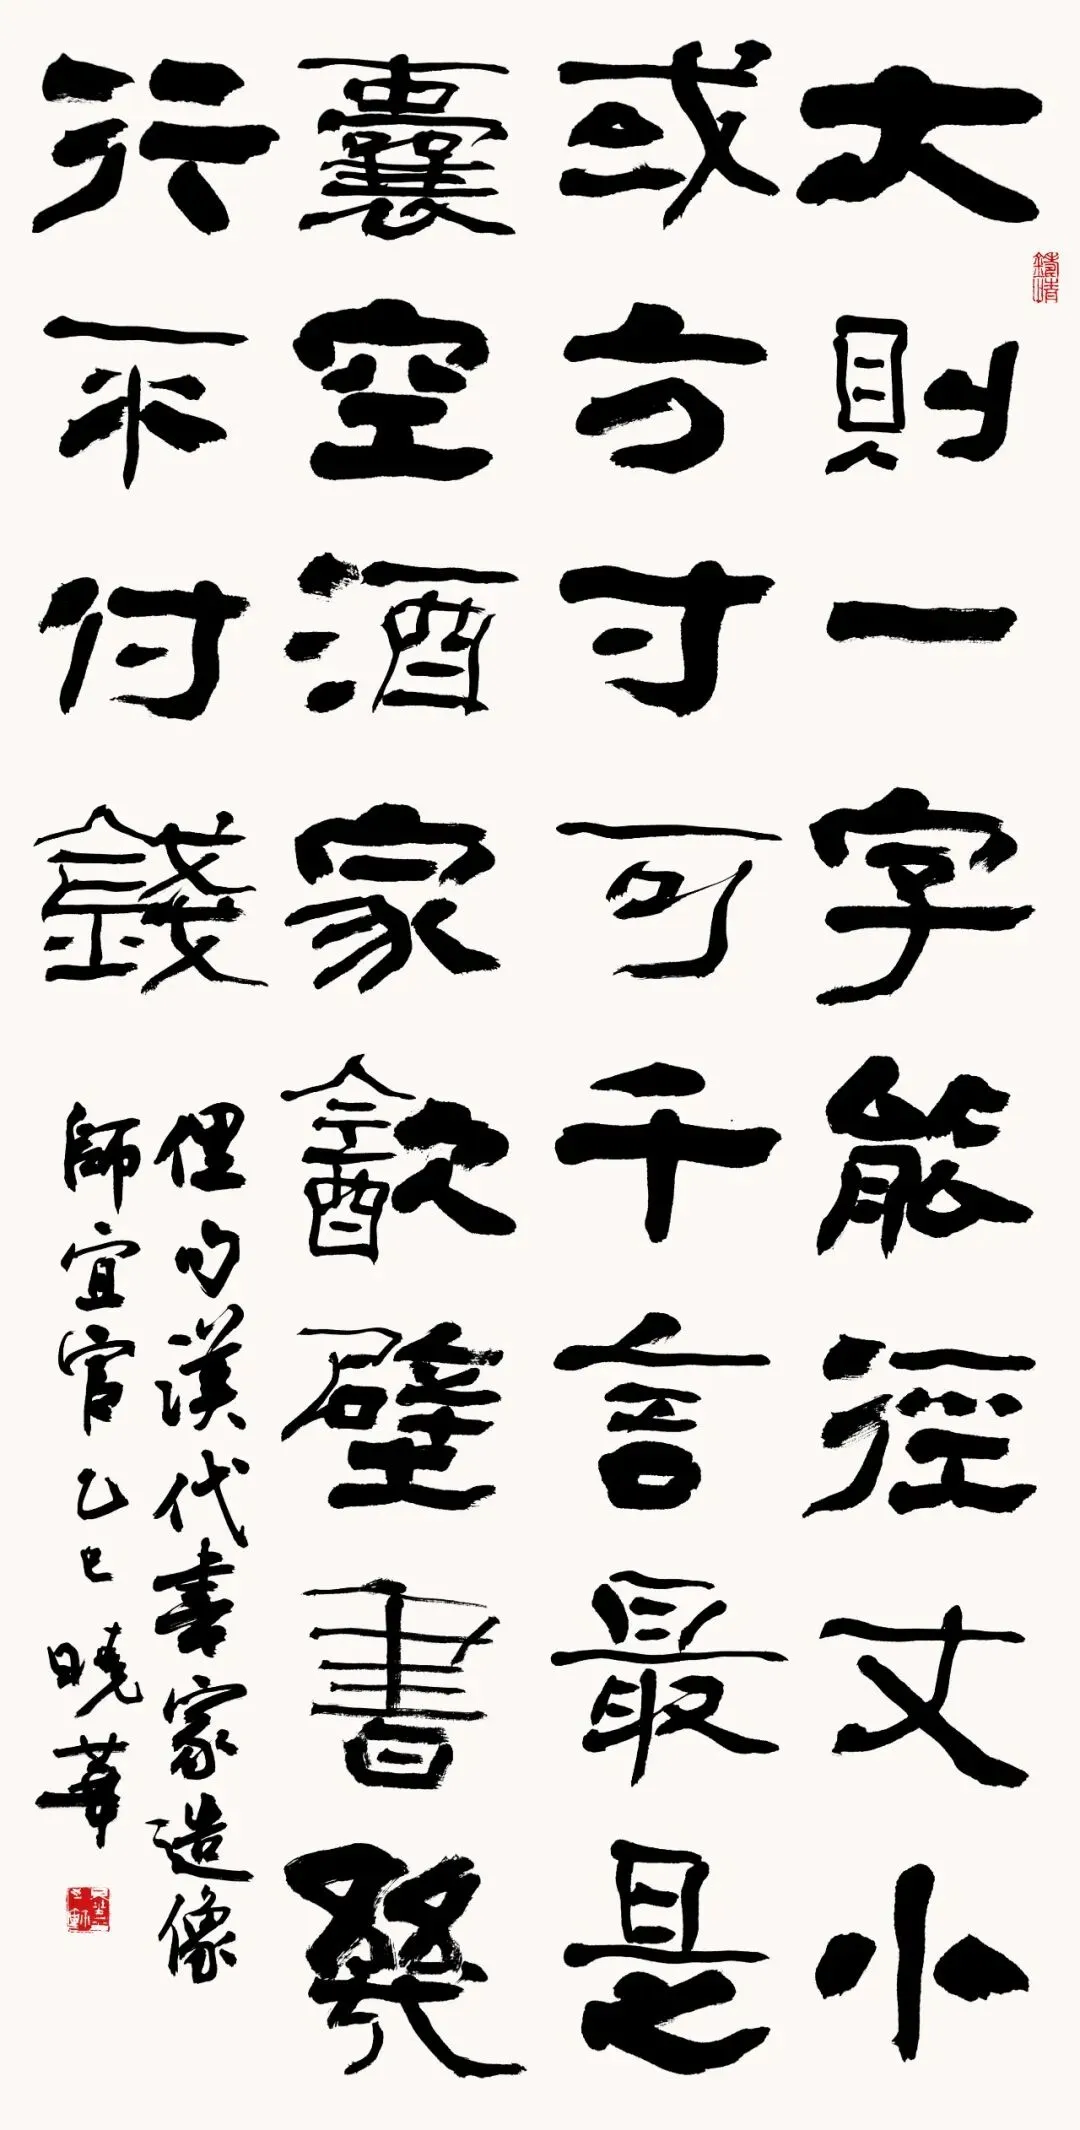 大則一字能徑丈小
或方寸可千言最是
囊空酒家㱃壁書幾
行不付錢
俚句漢代書家造像
師宜官乙巳曉華